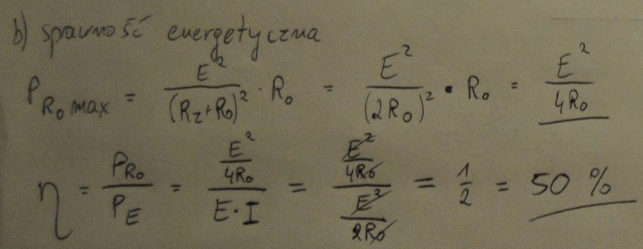 b) sprawność energetyczna
P_{R_0 max} = \frac{E^2}{(R_z+R_0)^2} \cdot R_0 = \frac{E^2}{(2R_0)^2} \cdot R_0 = \frac{E^2}{4R_0}
\eta = \frac{P_{R_0}}{P_E} = \frac{\frac{E^2}{4R_0}}{E \cdot I} = \frac{\frac{E^2}{4R_0}}{\frac{E^2}{2R_0}} = \frac{1}{2} = 50 %